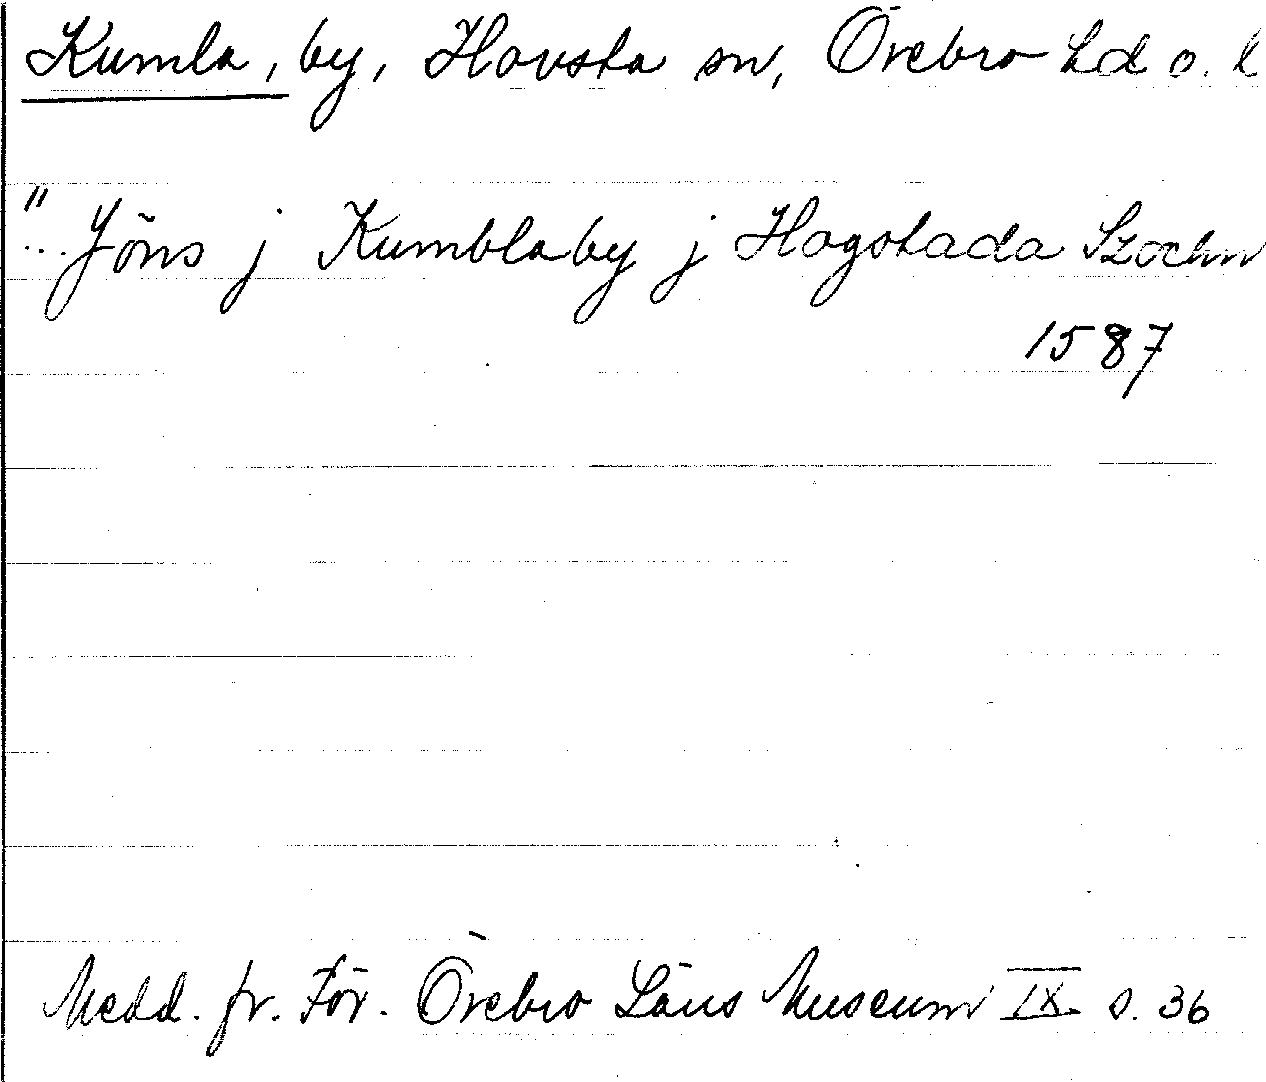 Kumla, by, Hovsta sn, Örebro hd o. l
"... Jöns j Kumblaby j Hogstada Szochn
1587
Medd. fr. För. Örebro Läns Museum IX s. 36